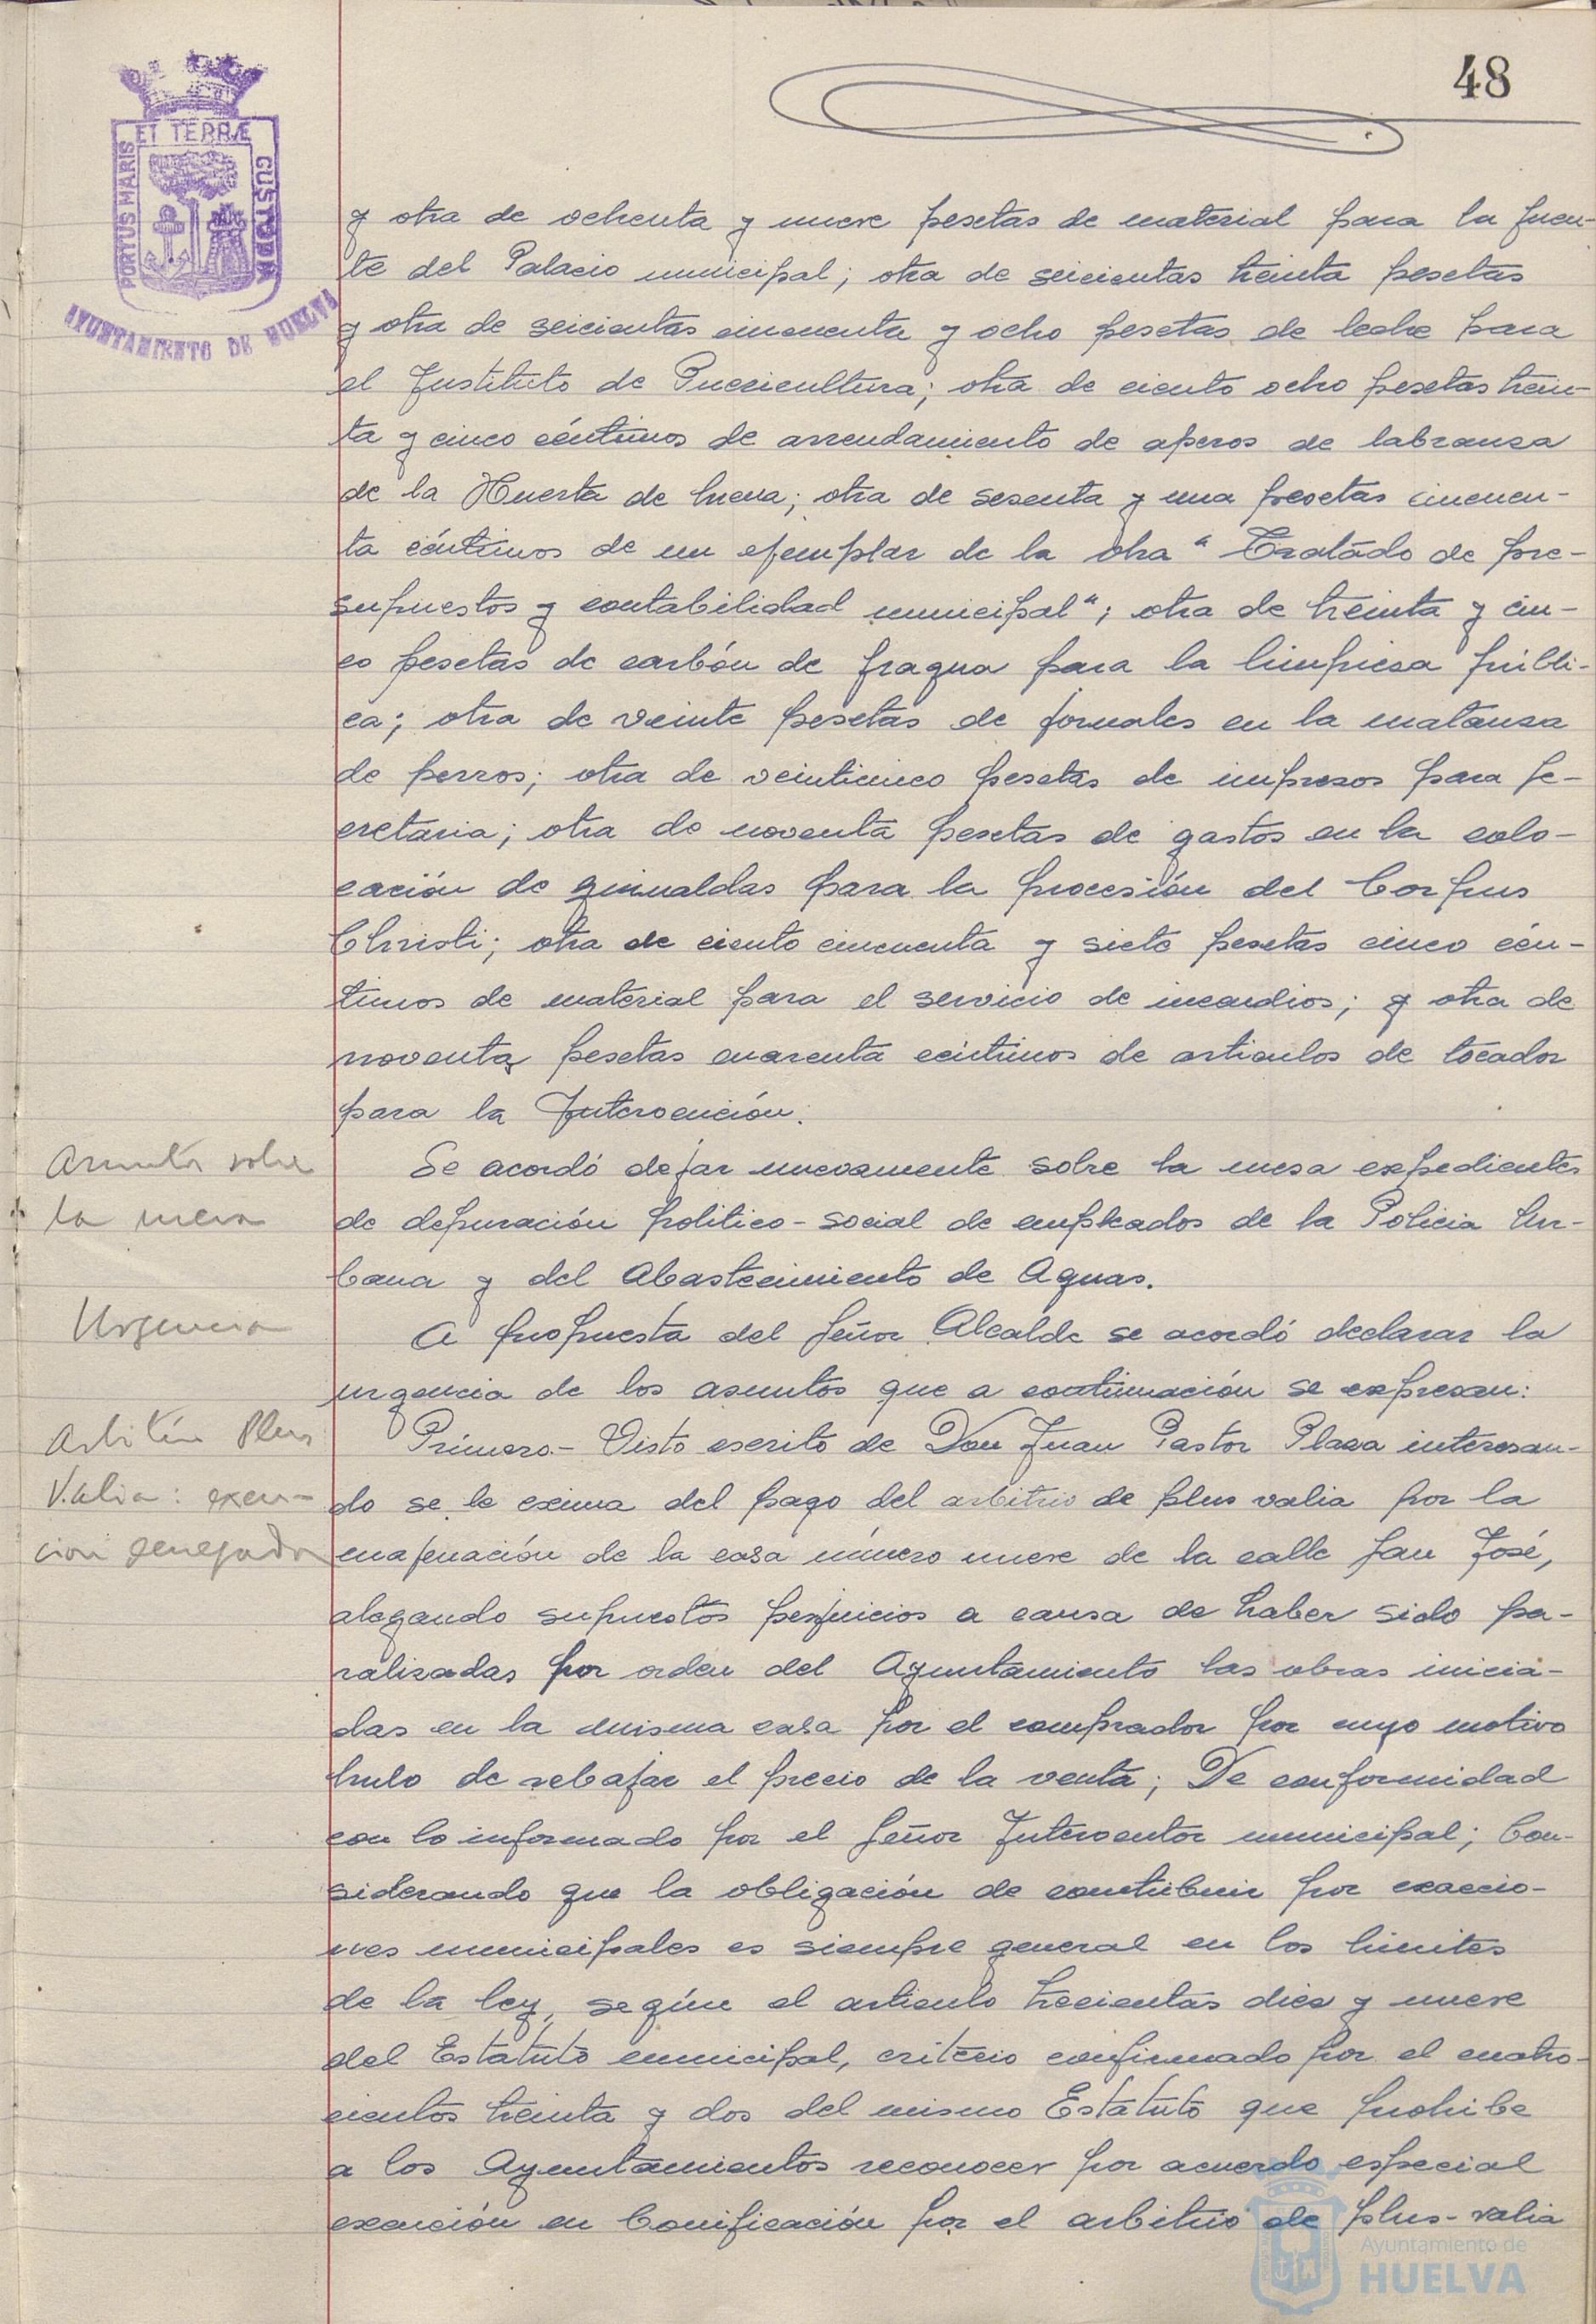 48
ET TERRÆ
PORTUS MARIS
CUSTODIA
AYUNTAMIENTO DE HUELVA
y otra de ochenta y nueve pesetas de material para la fuen-
te del Palacio municipal; otra de seicientas treinta pesetas
y otra de seicientas cincuenta y ocho pesetas de leche para
el Instituto de Puericultura; otra de ciento ocho pesetas trein-
ta y cinco céntimos de arrendamiento de aperos de labranza
de la Huerta de hueva; otra de sesenta y una pesetas cincuen-
ta céntimos de un ejemplar de la obra "Tratado de pre-
supuestos y contabilidad municipal"; otra de treinta y cin-
co pesetas de carbón de fragua para la limpieza públi-
ca; otra de veinte pesetas de jornales en la matanza
de perros; otra de veinticinco pesetas de impresos para Se-
cretaria; otra de noventa pesetas de gastos en la colo-
cación de guirnaldas para la procesión del Corpus
Christi; otra de ciento cincuenta y siete pesetas cinco cén-
timos de material para el servicio de incendios; y otra de
noventa pesetas cuarenta céntimos de articulos de tocador
para la Intervención.
Asuntos sobre
la mesa
Se acordó dejar nuevamente sobre la mesa expedientes
de depuración politico-social de empleados de la Policia Ur-
bana y del Abastecimiento de Aguas.
Urgencia
A propuesta del Señor Alcalde se acordó declarar la
urgencia de los asuntos que a continuación se expresan:
Arbitrio Plus
Valia: exen-
cion denegada
Primero.- Visto escrito de Don Juan Pastor Plaza interesan-
do se le exima del pago del arbitrio de plus valia por la
enajenación de la casa número nueve de la calle San José,
alegando supuestos perjuicios a causa de haber sido pa-
ralizadas por orden del Ayuntamiento las obras inicia-
das en la misma casa por el comprador por cuyo motivo
hubo de rebajar el precio de la venta; De conformidad
con lo informado por el Señor Interventor municipal; Con-
siderando que la obligación de contribuir por exaccio-
nes municipales es siempre general en los limites
de la ley, según el articulo trecientas diez y nueve
del Estatuto municipal, criterio confirmado por el cuatro-
cientos treinta y dos del mismo Estatuto que prohibe
a los Ayuntamientos reconocer por acuerdo especial
exención en bonificación por el arbitrio de plus-valia
Ayuntamiento de
HUELVA